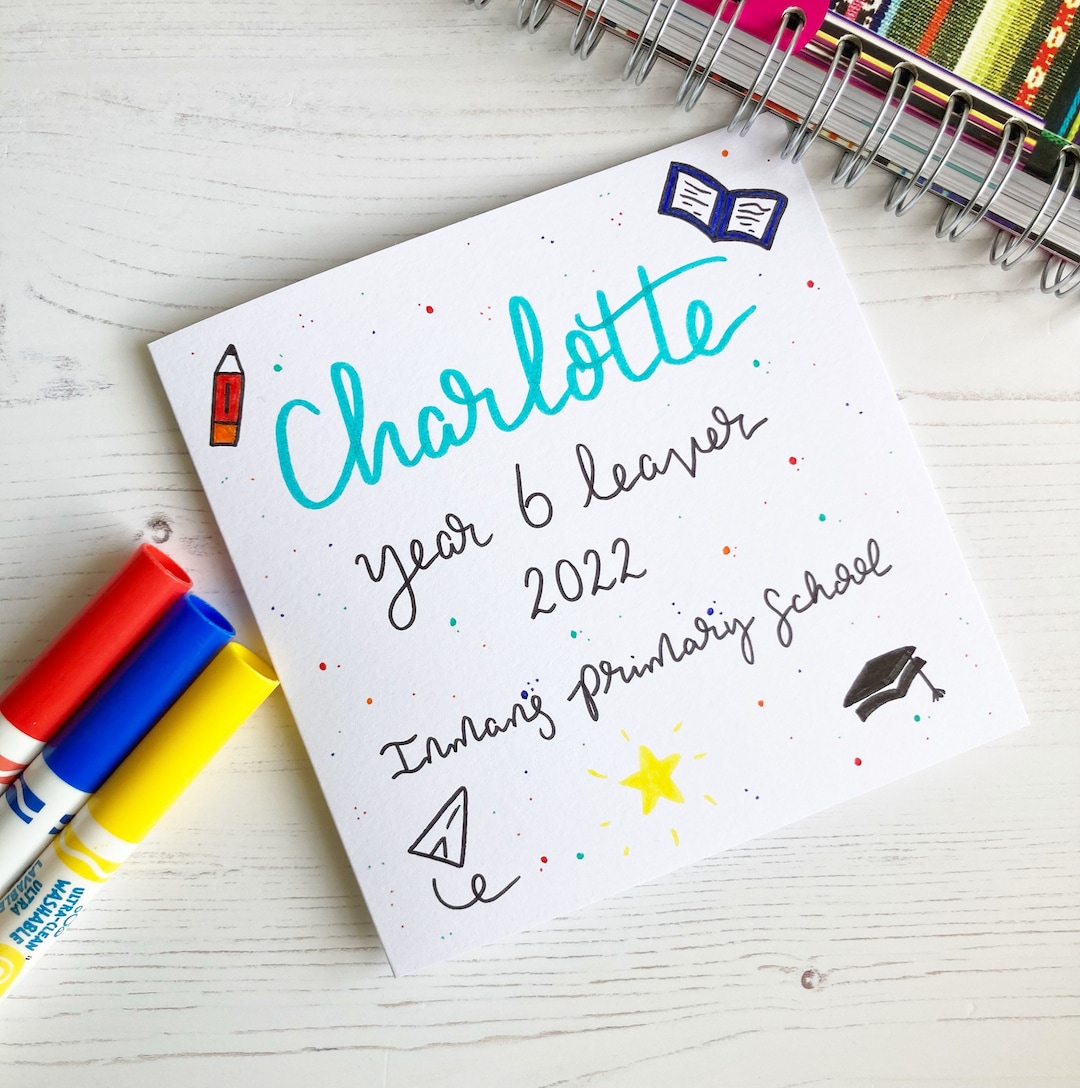 Charlotte
year 6 leaver
2022
Inmans primary School
ULTRA-CLEAN
WASHABLE
ULTRA
LAVABLE